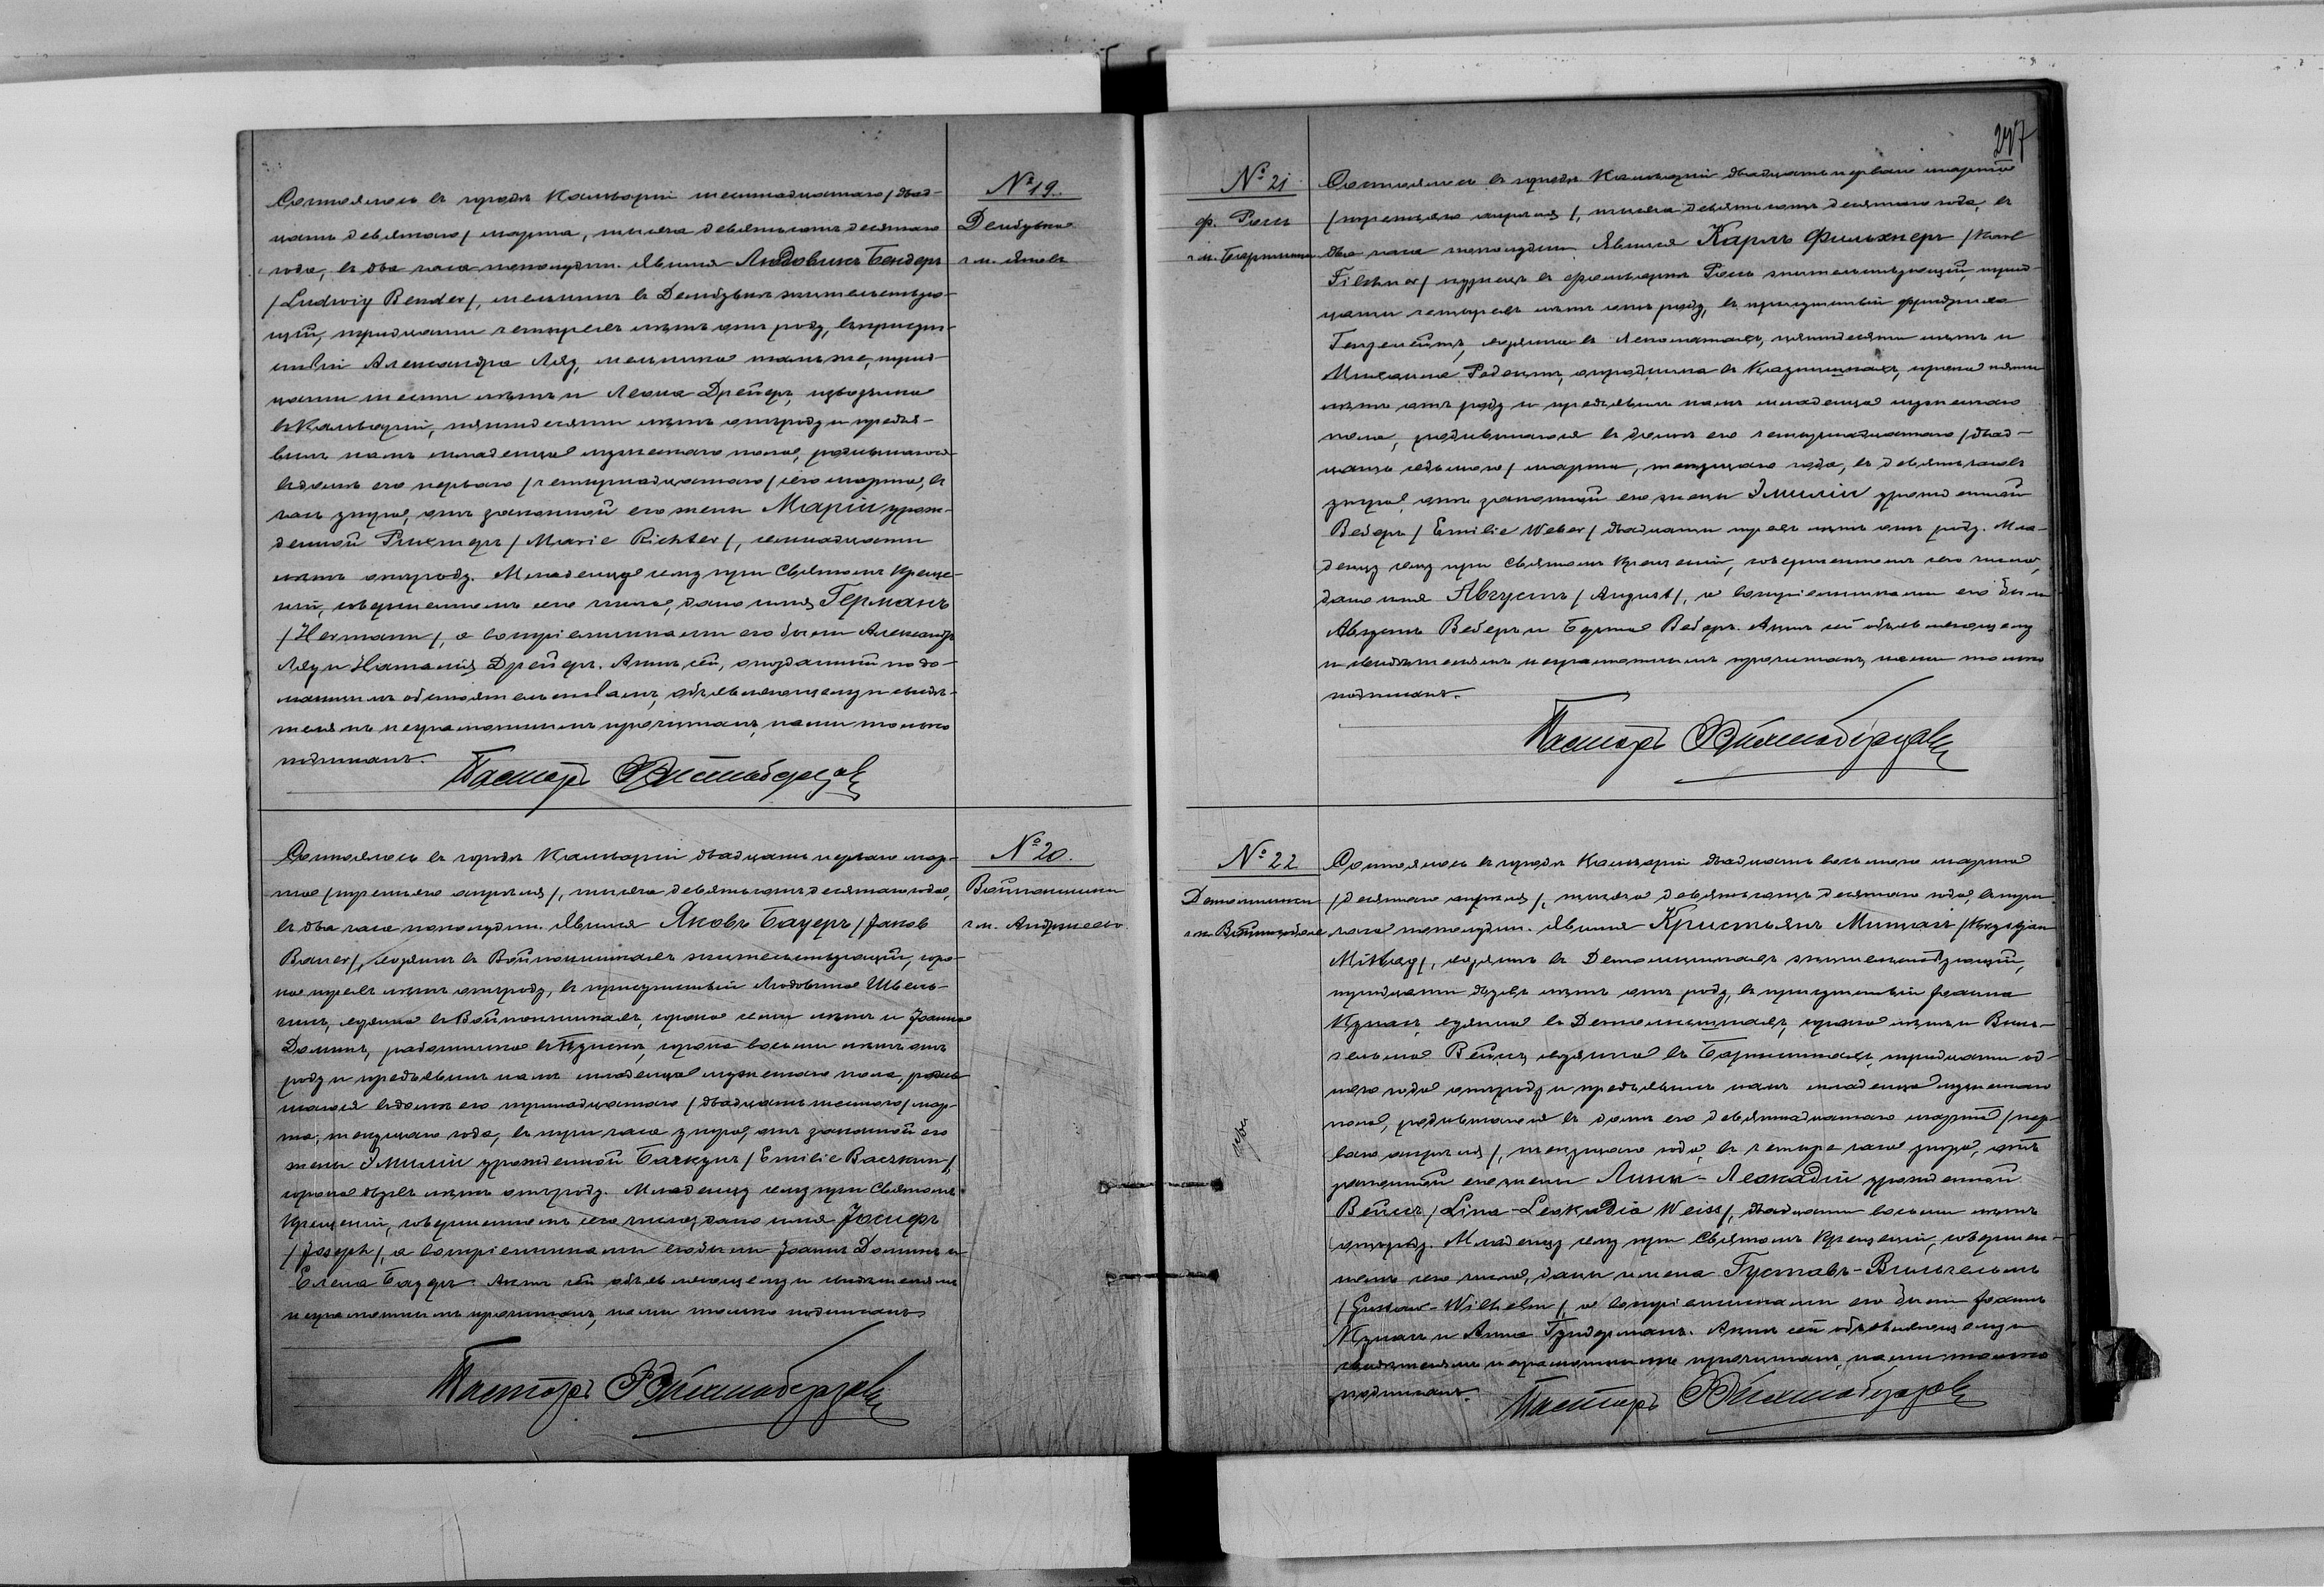 № 19.
Дембувка
г.м. Янов
Состоялось въ городѣ Кальваріи шестнадцатаго /двад-
цать девятаго/ марта, тысяча девятьсотъ десятаго
года, въ два часа пополудни. Явился Людовикъ Бендеръ
/Ludwig Bender/, мельникъ въ Дембувкѣ жительствую-
щій, тридцати четырехъ лѣтъ отъ роду, въ присут-
ствіи Александра Ляу, мельника тамъ же, трид-
цати шести лѣтъ и Леона Дрейеръ, извозчика
въ Кальваріи, пятидесяти лѣтъ отъ роду и предъя-
вилъ намъ младенца мужескаго пола, родившагося
въ домѣ его перваго /четырнадцатаго/ сего марта, въ
часъ утра, отъ законной его жены Маріи урож-
денной Рихтеръ /Marie Richter/,
лѣтъ отъ роду. Младенцу сему при Святомъ Креще-
ніи, совершенномъ сего числа, дано имя Германъ
/Hermann/, а воспріемниками его были Александръ
Ляу и Наталія Дрейеръ. Актъ сей, опозданный по до-
машнимъ обстоятельствамъ, объявляющему и свидѣ-
телямъ неграмотнымъ прочитанъ, нами только
подписанъ.
Пасторъ
№ 20.
г.м. Андржеево
Состоялось въ городѣ Кальваріи двадцать перваго мар-
та /третьяго апрѣля/, тысяча девятьсотъ десятаго года,
въ два часа пополудни. Явился Яковъ Бауеръ /Jakob
Bauer/, жительствующій, соро-
ка трехъ лѣтъ отъ роду, въ присутствіи Людовика
сорока семи лѣтъ и Іоанна
сорока восьми лѣтъ отъ
роду и предъявилъ намъ младенца мужескаго пола, родив-
шагося въ домѣ его тринадцатаго /двадцать шестого/ мар-
та, текущаго года, въ три часа утра, отъ законной его
жены Эмиліи урожденной Бачкунъ /Emilie Baczkun/,
сорока двухъ лѣтъ отъ роду. Младенцу сему при Святомъ
Крещеніи, совершенномъ сего числа, дано имя Іосифъ
/Joseph/, а воспріемниками его были Іоаннъ и
Елена Бауеръ. Актъ сей объявляющему и свидѣтелямъ
неграмотнымъ прочитанъ, нами только подписанъ
Пасторъ
247
№ 21
ф. Росы
Состоялось въ городѣ Кальваріи двадцать перваго марта
/третьяго апрѣля/, тысяча девятьсотъ десятаго года, въ
два часа пополудни. Явился Карлъ Фильхнеръ /Karl
Filchner/ кузнецъ въ фольваркѣ Росы жительствующій, трид-
цати четырехъ лѣтъ отъ роду, въ присутствіи Фридриха
пятидесяти лѣтъ и
Михаила сорока пяти
лѣтъ отъ роду и предъявилъ намъ младенца мужескаго
пола, родившагося въ домѣ его четырнадцатаго /двад-
цать седьмого/ марта, текущаго года, въ девять часовъ
утра, отъ законной его жены Эмиліи урожденной
Веберъ /Emilie Weber/ двадцати трехъ лѣтъ отъ роду. Мла-
денцу сему при Святомъ Крещеніи, совершенномъ сего числа,
дано имя Августъ /August/, а воспріемниками его были
Августъ Веберъ и Берта Веберъ. Актъ сей объявляющему
и свидѣтелямъ неграмотнымъ прочитанъ, нами только
подписанъ.
Пасторъ
№ 22
Состоялось въ городѣ Кальваріи двадцать восьмого марта
/десятаго апрѣля/, тысяча девятьсотъ десятаго года, въ три
часа пополудни. Явился Кристьянъ Миттагъ /Krystjan
Mittag/, жительствующій,
тридцати двухъ лѣтъ отъ роду, въ присутствіи Іоанна
сорока лѣтъ и Виль-
гельма Вейсъ, тридцати од-
ного года отъ роду и предъявилъ намъ младенца мужескаго
пола, родившагося въ домѣ его девятнадцатаго марта /пер-
ваго апрѣля/, текущаго года, въ четыре часа утра, отъ
законной его жены Лины-Леокадіи урожденной
Вейсъ /Lina-Leokadia Weiss/, двадцати восьми лѣтъ
отъ роду. Младенцу сему при Святомъ Крещеніи, совершен-
номъ сего числа, даны имена Густавъ-Вильгельмъ
/Gustaw-Wilhelm/, а воспріемниками его были Іоаннъ
и Анна Гудерманъ. Актъ сей объявляющему и
свидѣтелямъ неграмотнымъ прочитанъ, нами только
подписанъ.
Пасторъ